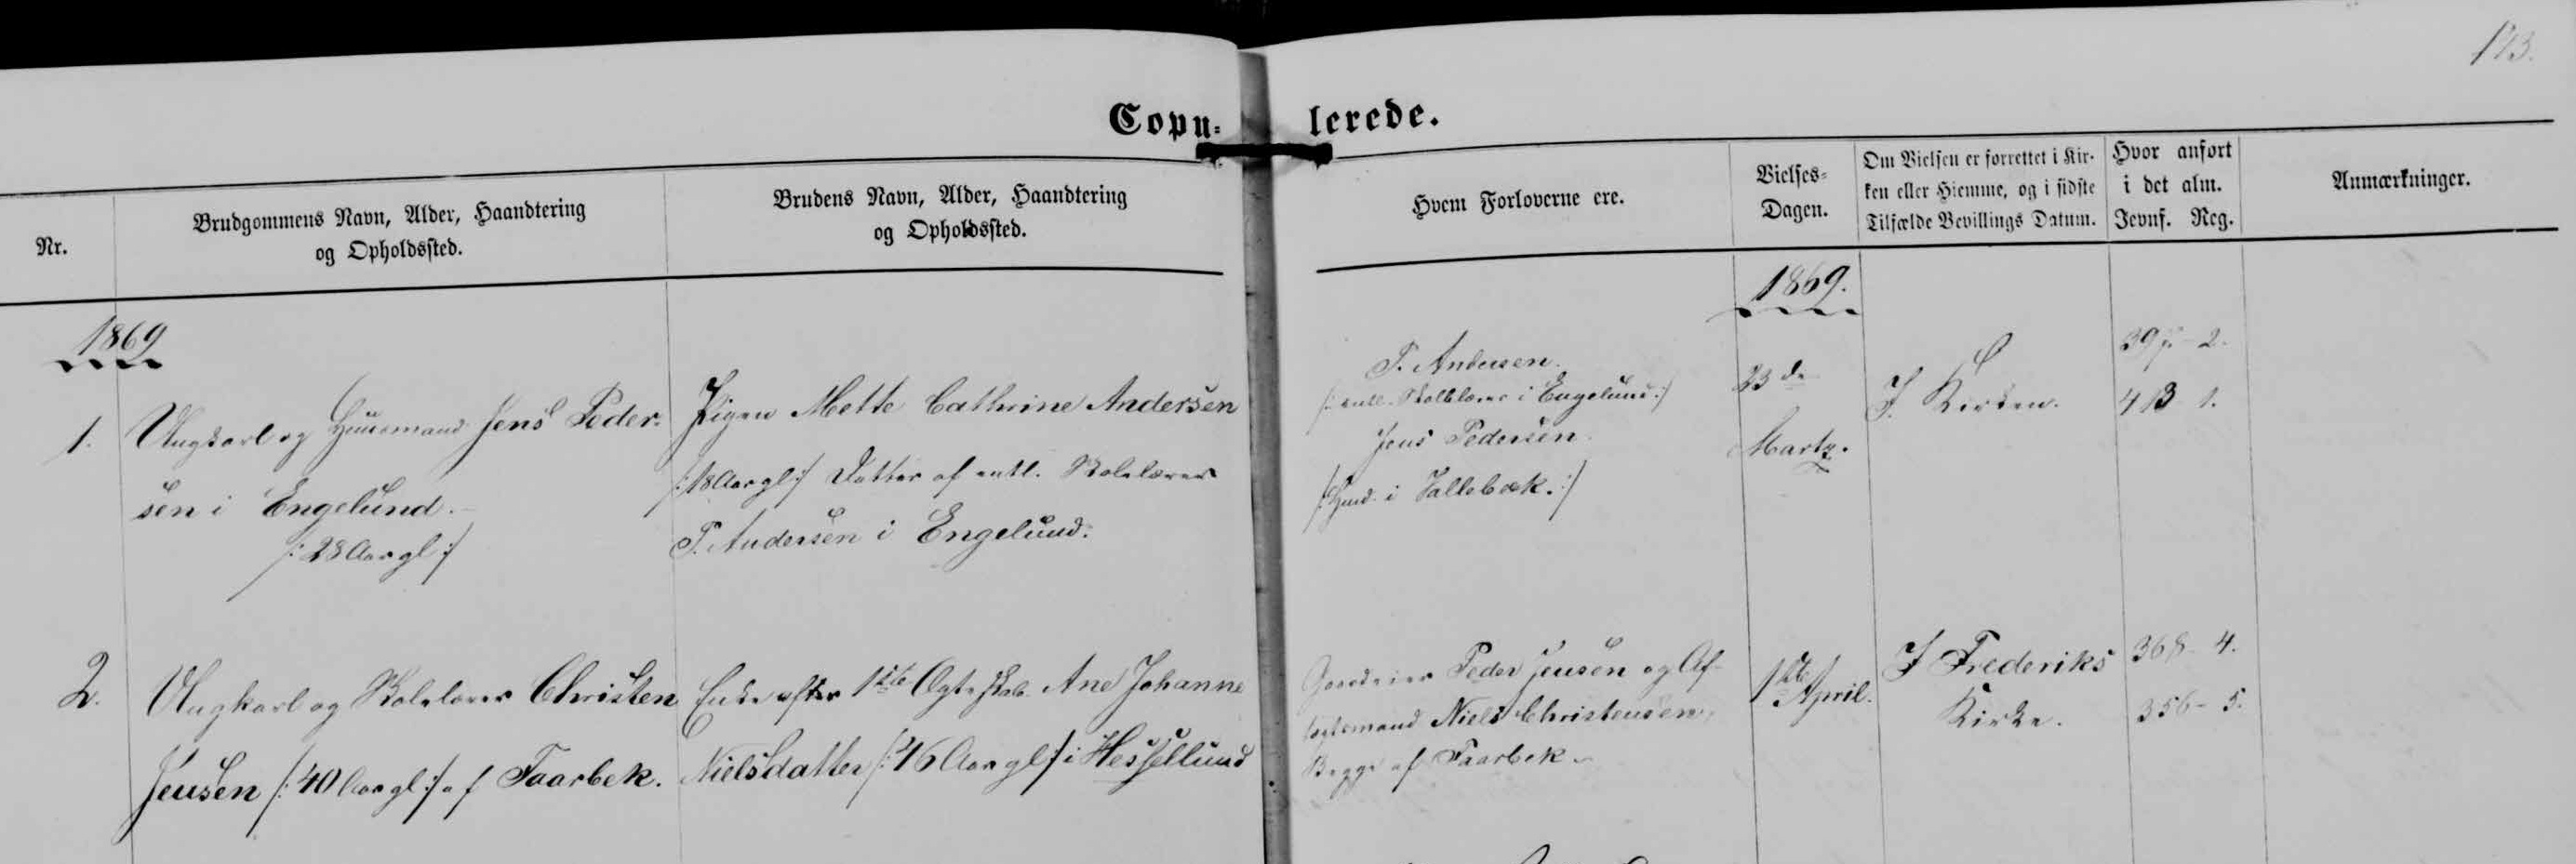 173.
Copu=
lerede.
Nr.
Brudgommens Navn, Alder, Haandtering
og Opholdssted.
Brudens Navn, Alder, Haandtering
og Opholdssted.
Hvem Forloverne ere.
Vielses=
Dagen.
Om Vielsen er forrettet i Kir-
ken eller Hjemme, og i sidste
Tilfælde Bevillings Datum.
Hvor anført
i det alm.
Jevnf. Reg.
Anmærkninger.
1869
1.
Ungkarl og Huusmand Jens Peder-
sen i Engelund.
/: 28 Aar gl :/
Pigen Mette Cathrine Andersen
/: 18 Aar gl :/ Datter af entl. Skolelærer
P. Andersen i Engelund.
P. Andersen.
/: entl. Skolelærer i Engelund :/
Jens Pedersen.
/: Hmd. i Vallebæk. :/
1869.
23de
Martz.
I Kirken.
397 - 2.
413 1.
2.
Ungkarl og Skolelærer Christen
Jensen /: 40 Aar gl :/ af Faarbek.
Enke efter 1ste Ægteskab Ane Johanne
Nielsdatter /: 46 Aar gl :/ i Hessellund
Gaardeier Peder Jensen og Af-
tægtsmand Niels Christensen,
Begge af Faarbek.
1ste April.
I Frederiks
Kirke.
368 - 4.
356 - 5.